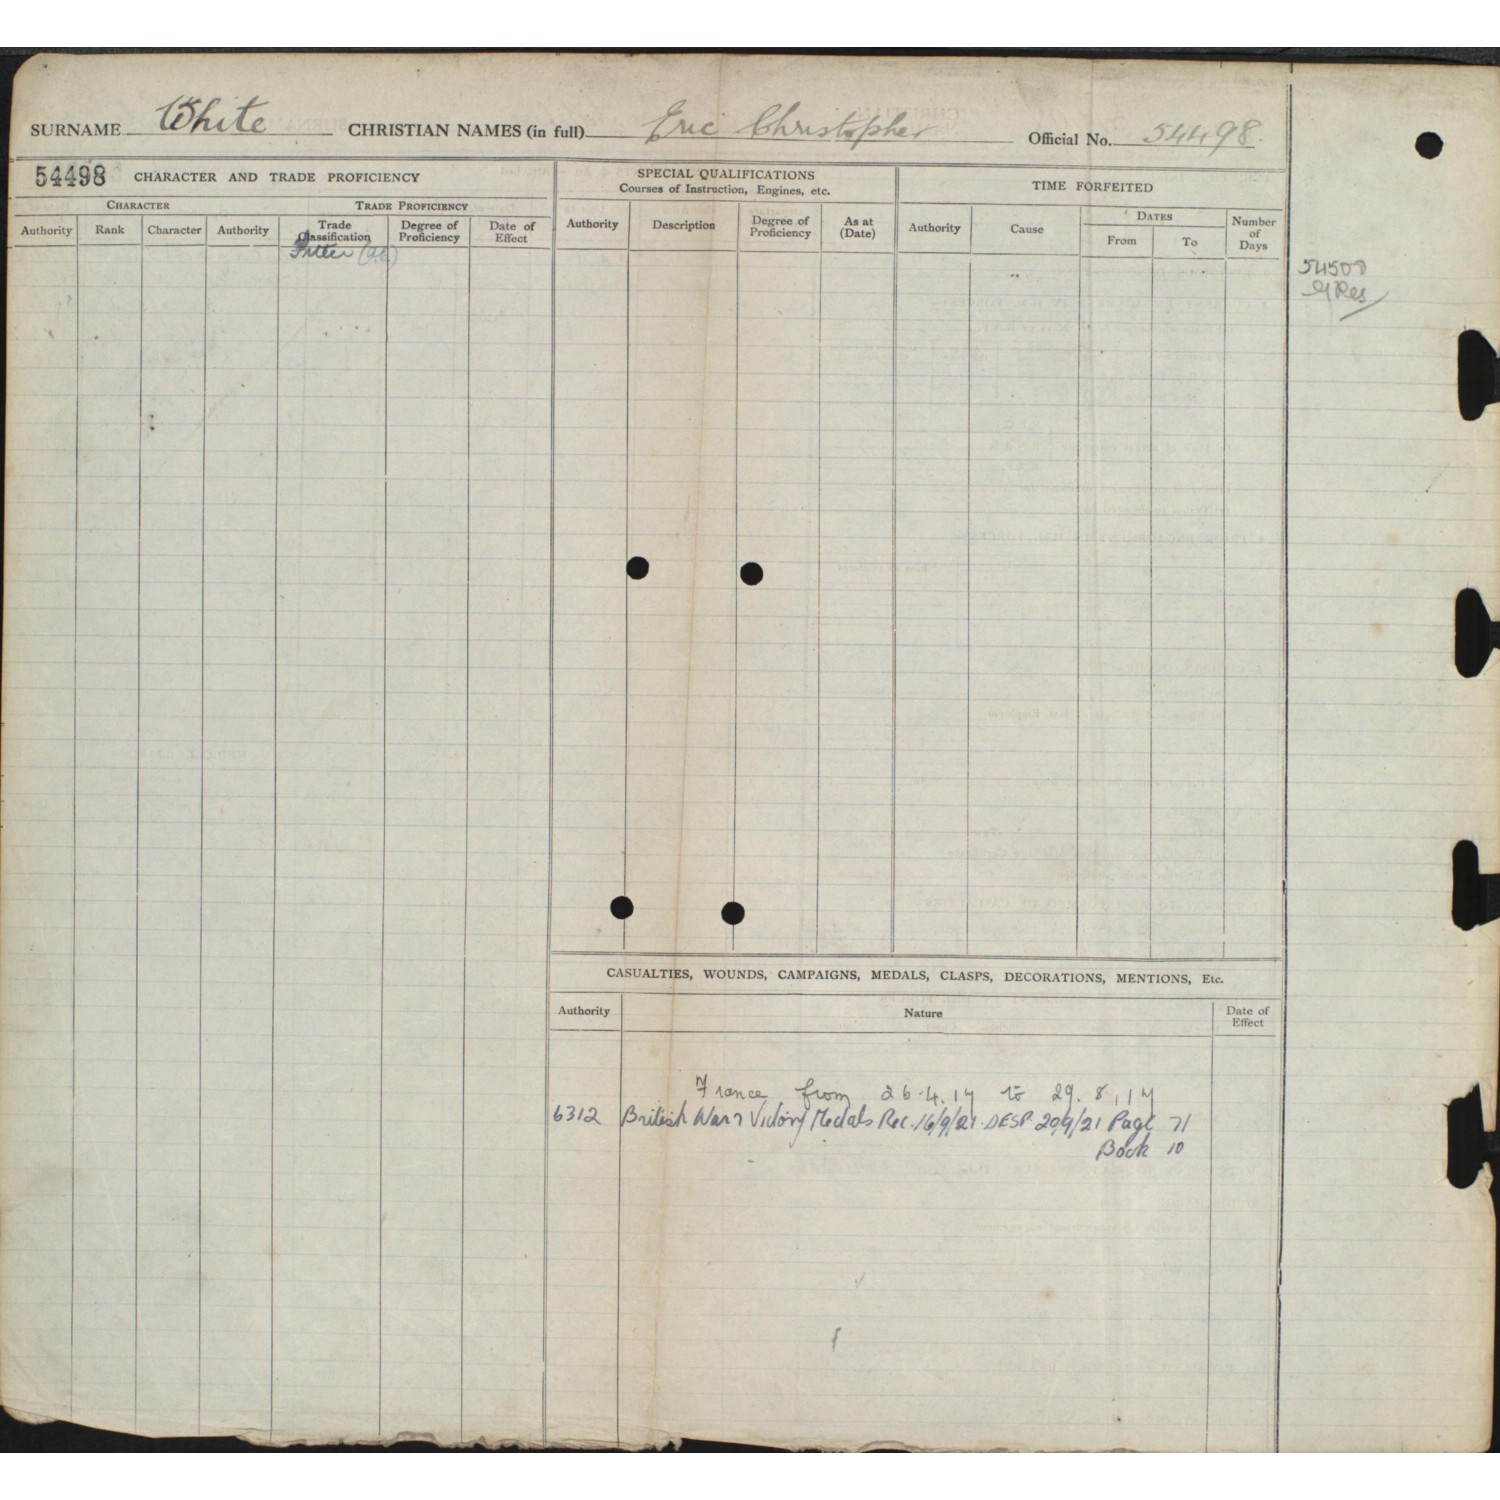 SURNAME White CHRISTIAN NAMES (in full) Eric Christopher Official No. 54498.
54498 CHARACTER AND TRADE PROFICIENCY
CHARACTER TRADE PROFICIENCY
Authority Rank Character Authority Trade Classification Degree of Proficiency Date of Effect
Fitter
SPECIAL QUALIFICATIONS
Courses of Instruction, Engines, etc.
Authority Description Degree of Proficiency As at (Date)
TIME FORFEITED
Authority Cause DATES From To Number of Days
54508
G Res
CASUALTIES, WOUNDS, CAMPAIGNS, MEDALS, CLASPS, DECORATIONS, MENTIONS, Etc.
Authority Nature Date of Effect
France from 26.4.17 to 29.8.17
6312 British War & Victory Medals Rec. 16/9/21 DESP 20/9/21 Page 71
Book 10